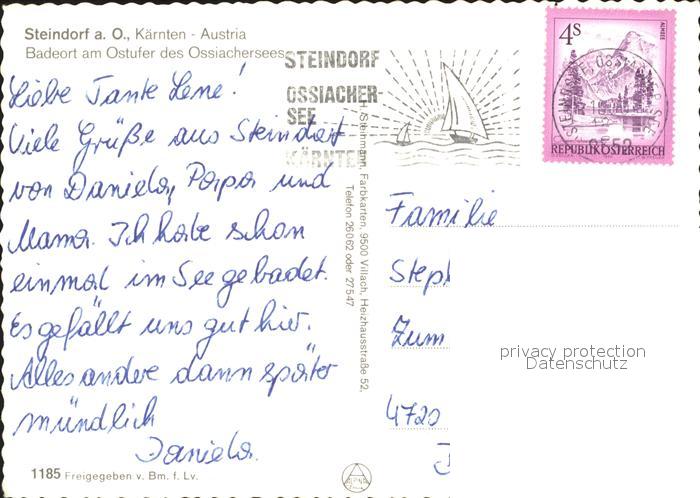 Steindorf a. O., Kärnten - Austria
Badeort am Ostufer des Ossiachersees
Liebe Tante Lene!
Viele Grüße aus Steindorf
von Daniela, Papa und
Mama. Ich habe schon
einmal im See gebadet.
Es gefällt uns gut hier.
Alles andere dann später
mündlich
Daniela.
1185 Freigegeben v. Bm. f. Lv.
STEINDORF
OSSIACHER-
SEE
KÄRNTEN
Steinmann, Farbkarten, 9500 Villach, Heizhausstraße 52,
Telefon 26062 oder 27547
4S
ALMSEE
REPUBLIK ÖSTERREICH
9552
Familie
Steph
Zum
4720
privacy protection
Datenschutz